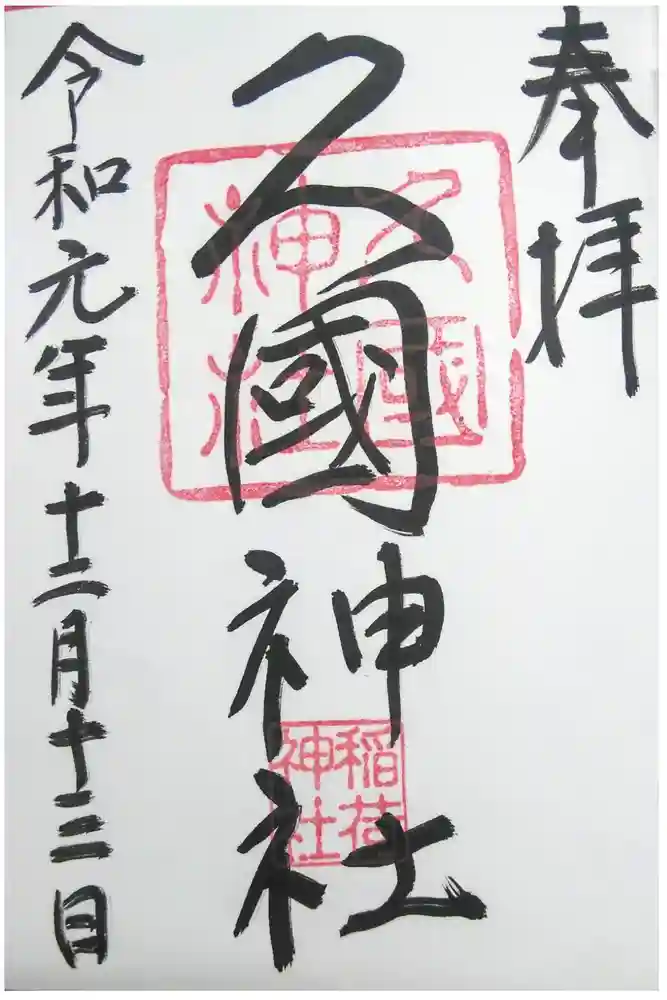 奉拝
久國神社
令和元年十二月十三日
久國
神社
稲荷
神社